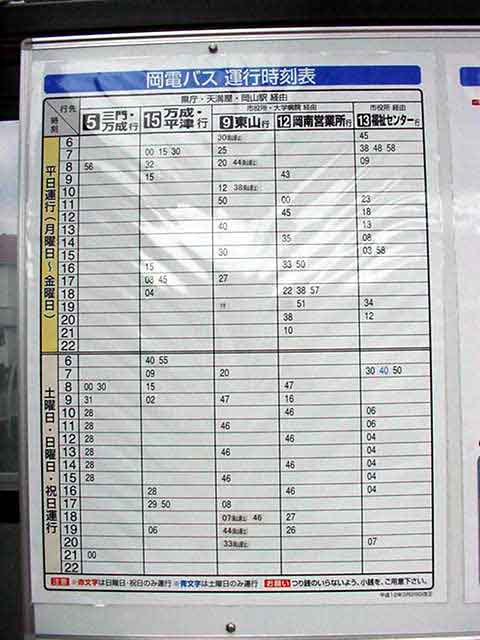 岡電バス 運行時刻表
行先
時刻
県庁・天満屋・岡山駅 経由
市役所・大学病院 経由
市役所 経由
5 三門・万成行
15 万成・平津行
9 東山行
12 岡南営業所行
13 福祉センター行
平日運行(月曜日〜金曜日)
6 30 45
7 00 15 30 25 38 48 58
8 56 32 20 44 09
9 15 43
10 12 38
11 50 00 23
12 45 18
13 40 13
14 35 08
15 30 03 58
16 15 33 50
17 08 45 27
18 04 22 38 57
19 51 34
20 38 12
21 10
22
土曜日・日曜日・祝日運行
6 40 55
7 09 20 30 40 50
8 00 30 15 47
9 31 02 47 16
10 28 46 06
11 28 46 06
12 28 46 04
13 28 46 04
14 28 46 04
15 28 46 04
16 28 46 04
17 29 50 08
18 07 46 27
19 06 44 26
20 33 07
21 00
22
注意 ※赤文字は日曜日・祝日のみ運行 ※青文字は土曜日のみ運行 お願い つり銭のいらないよう、小銭を、ご用意下さい。